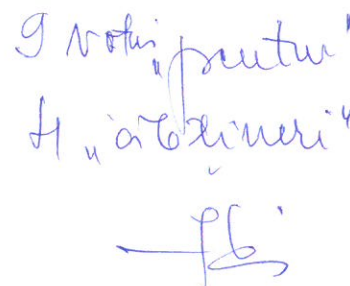 9 voturi „pentru"
4 „abțineri"